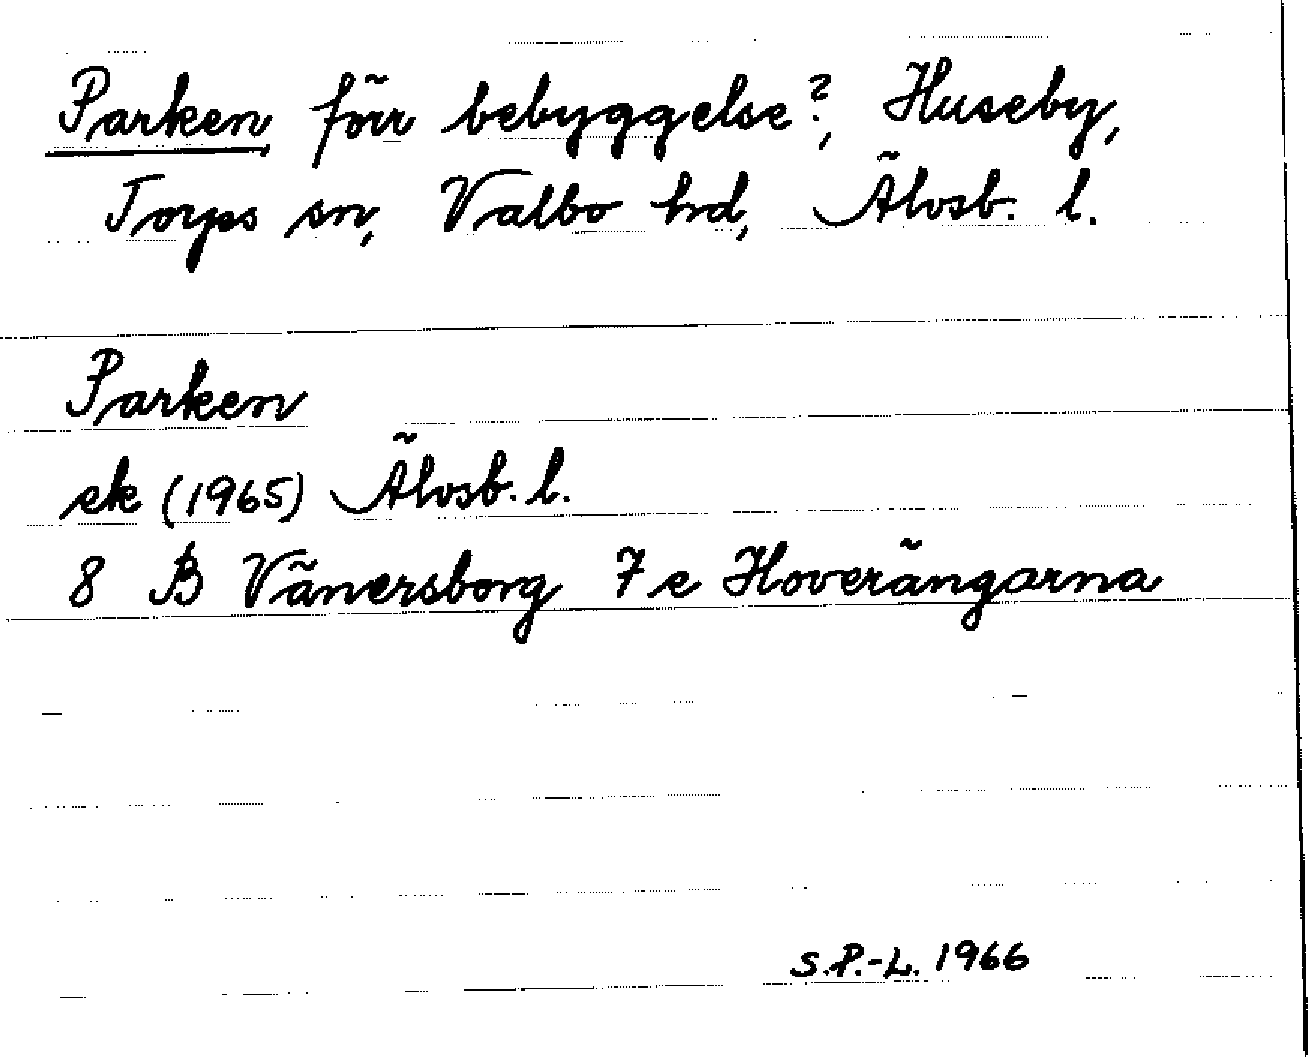 Parken förr bebyggelse?, Huseby,
Torps sn, Valbo hd, Älvsb. l.
Parken
ek (1965) Älvsb. l.
8 B Vänersborg 7 e Hoverängarna
S.P.-L. 1966